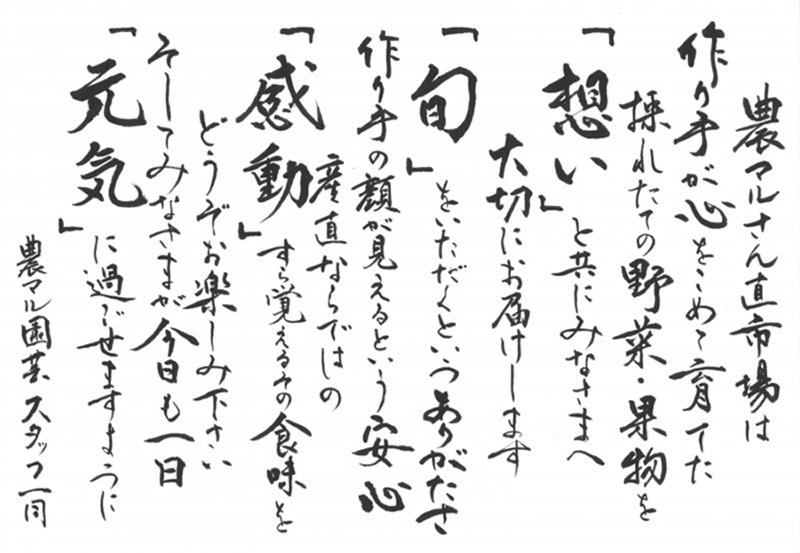 農マルさん直市場は
作り手が心をこめて育てた
採れたての野菜・果物を
「想い」と共にみなさまへ
大切にお届けします
「旬」をいただくというありがたさ
作り手の顔が見えるという安心
産直ならではの
「感動」すら覚えるみの食味を
どうぞお楽しみ下さい
そしてみなさまが今日も一日
「元気」に過ごせますように
農マル園芸スタッフ一同